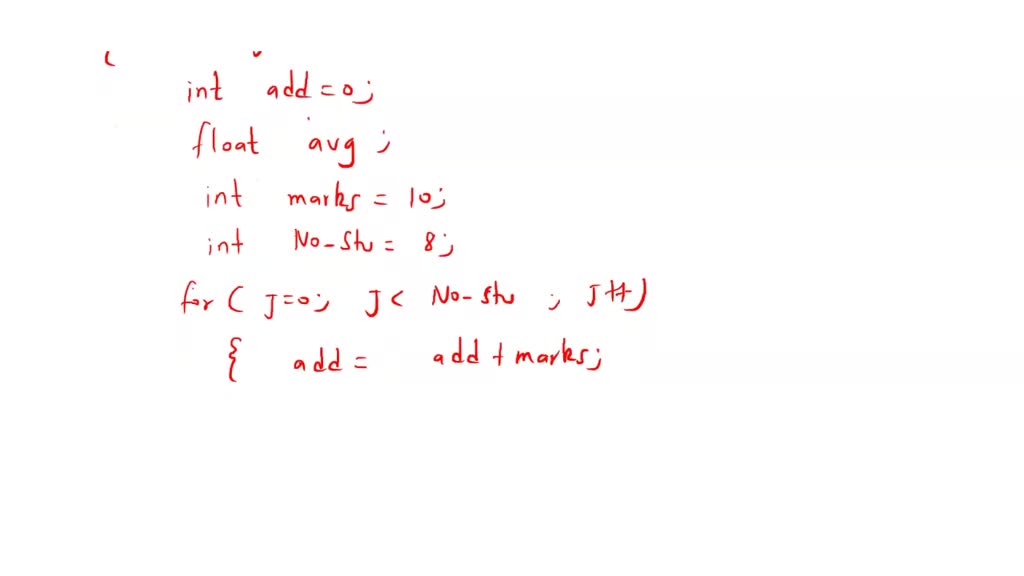 int add = 0;
float avg ;
int marks = 10;
int No-Stu = 8;
for ( J=0; J < No-stu ; J++)
{ add = add + marks;